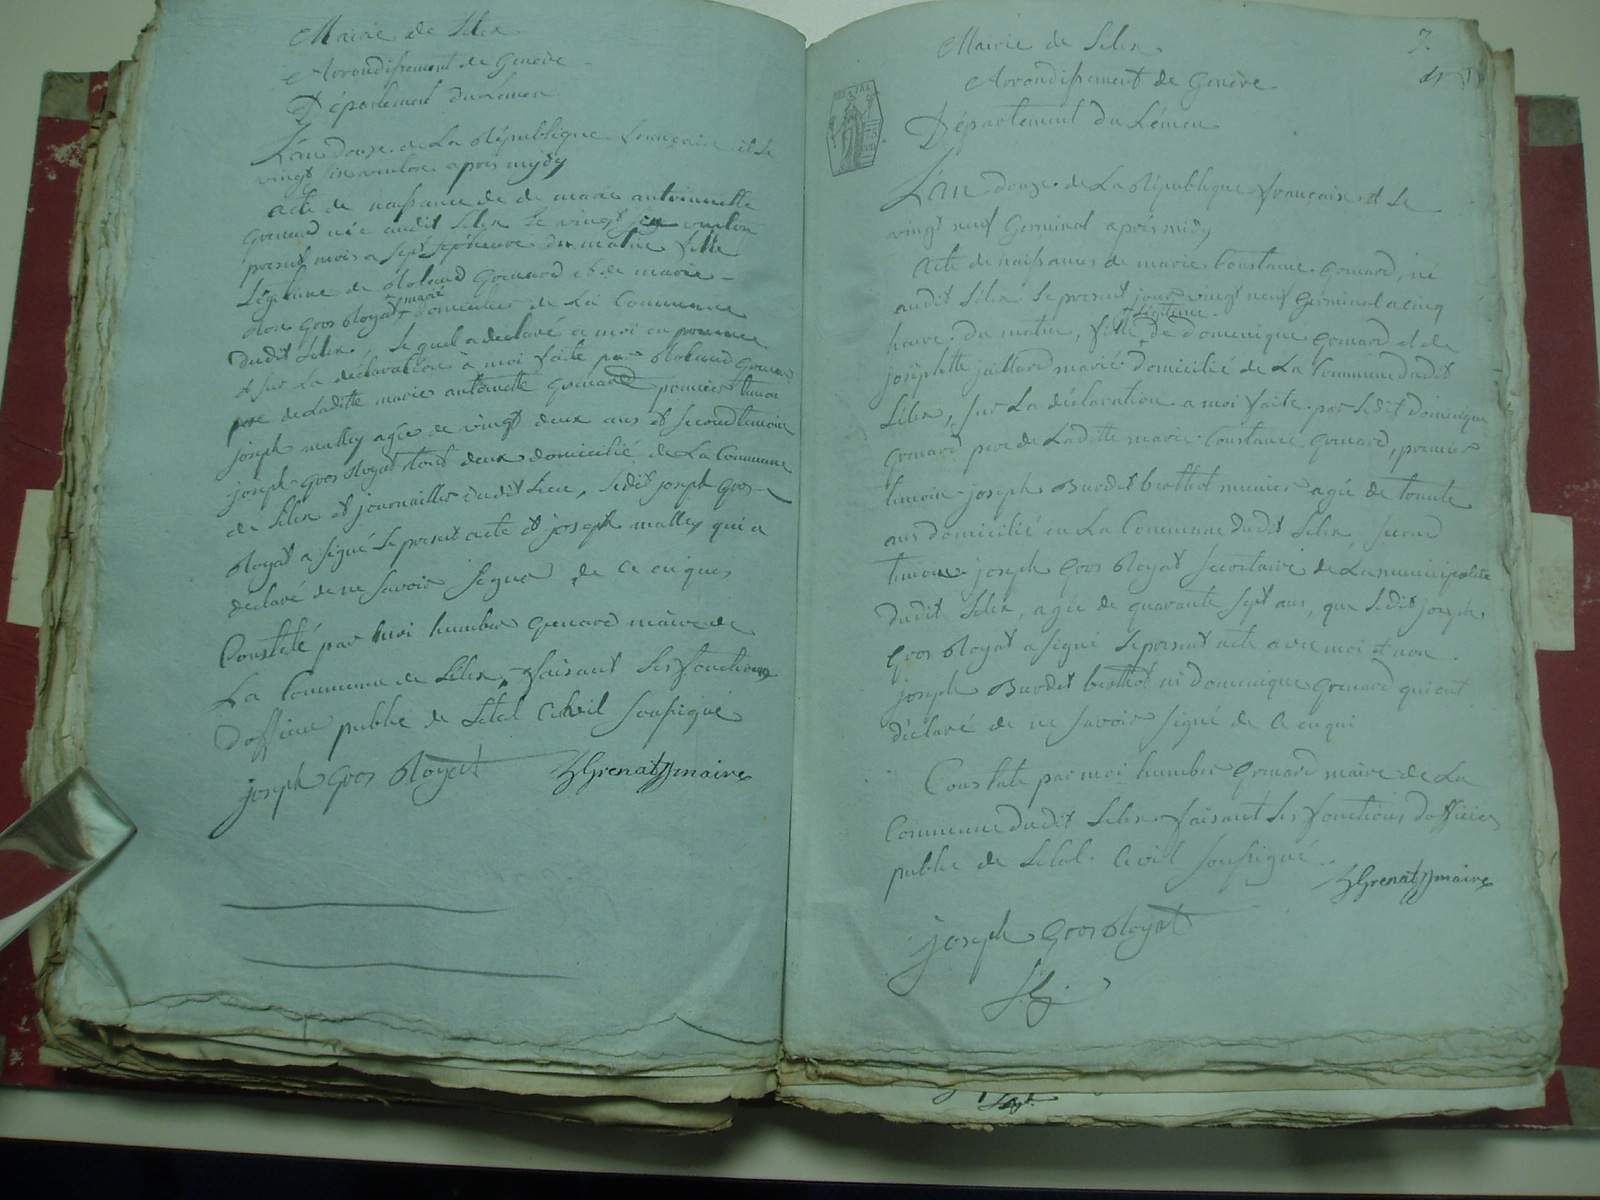 Mairie de Lelex
Arrondissement de Genève
Département du Leman
L'an douze de La République francaise et le
vingt six ventose apres midy
acte de naissance de de marie antoinette
Grenard née audit Lelex le vingt six ventose
present mois a sept heure du matin fille
Légitime de Roland Grenard et de marie
Gros Royat marié domiciliés de La Commune
dudit Lelex. Lequel a declaré a moi
et sur La déclaration à moi faite par Roland Grenard
pere de Laditte marie antoinette Grenard premier temoin
joseph malley agée de vingt deux ans et second temoin
joseph Gros Royat tous deux domicilié de La Commune
de Lelex et journaillier dudit Lieu, Ledit joseph Gros
Royat a signé Le present acte et joseph malley qui a
declaré de ne savoir signer de ce enquis
Constaté par moi humber Grenard maire de
La Commune de Lelex, faisant Les fonctions
dofficier public de Letat Civil soussigné
joseph Gros Royat Grenat maire
7.
Mairie de Lelex.
Arrondissement de Genève
Département du Léman
L'an douze de La République francaise et Le
vingt neuf Germinal après midy
Acte de naissance de marie Constance Grenard, né
audit Lelex Le present jour vingt neuf Germinal a cinq
heure du matin, fille Legitime de domenique Grenard et de
josephtte jaillard marié domicilié de La Commune dudit
Lelex, sur La déclaration a moi faite par Ledit dominique
Grenard pere de Laditte marie Constance Grenard, premier
temoin joseph Burdet berthot munier agée de trente
ans domicilié en La Commune dudit Lelex, second
temoin joseph Gros Royat secretaire de La municipalité
dudit Lelex, agée de quarante sept ans, que Ledit joseph
Gros Royat a signé Le present acte avec moi et non
joseph Burdet berthot ni domenique Grenard qui ont
déclaré de ne savoir signé de ce enqui
Constaté par moi humber Grenard maire de La
Commune dudit Lelex faisant Les fonctions dofficier
public de Letat Civil soussigné
Grenat maire
joseph Gros Royat